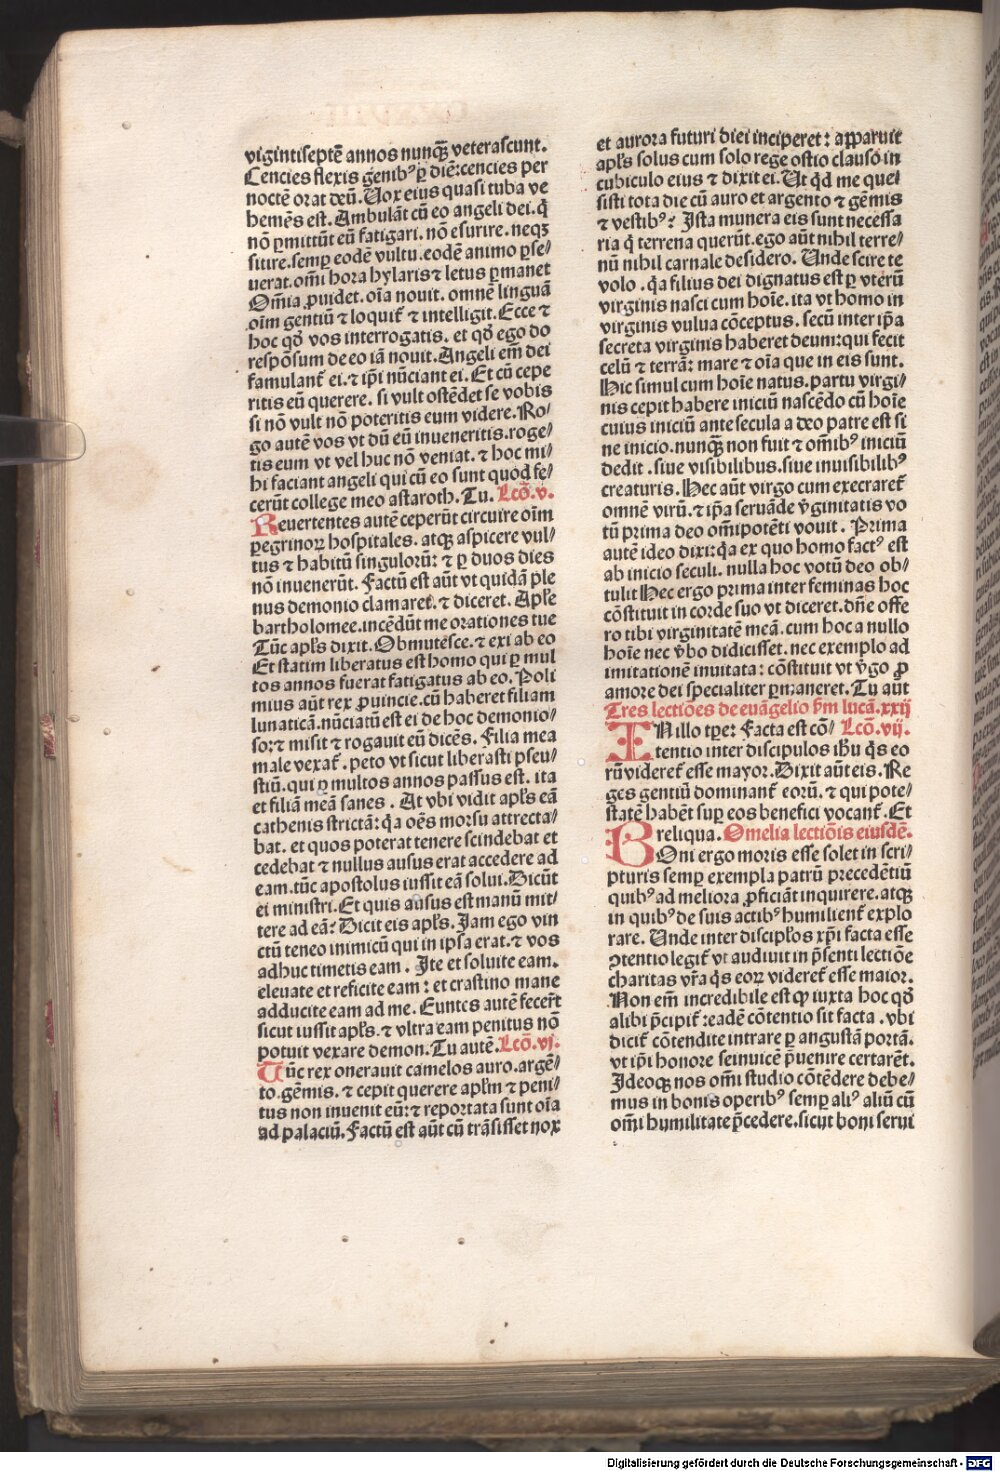 vigintiseptē annos nunq̄ȝ veterascunt.
Cencies flexis genibꝰ ꝑ diē:cencies per
noctē orat deū. Uox eius quasi tuba ve
hemēs est. Ambulāt cū eo angeli dei. q̄
nō ꝑmittūt eū fatigari. nō esurire. neqȝ
sitire. semꝑ eodē vultu. eodē animo ꝑse⸗
uerat. om̄i hora hylaris ⁊ letus ꝑmanet
Om̄ia ꝓuidet. oīa nouit. omnē linguā
oīm gentiū ⁊ loquit̄ ⁊ intelligit. Ecce ⁊
hoc qd̄ vos interrogatis. et qd̄ ego do
respōsum de eo iā nouit. Angeli em̄ dei
famulant̄ ei. ⁊ ip̄i nūciant ei. Et cū cepe
ritis eū querere. si vult ostēdet se vobis
si nō vult nō poteritis eum videre. Ro⸗
go autē vos vt dū eū inueneritis. roge⸗
tis eum vt vel huc nō veniat. ⁊ hoc mi⸗
hi faciant angeli qui cū eo sunt quod fe⸗
cerūt college meo astaroth. Tu. Lcō. v.
Reuertentes autē ceperūt circuire oīm
peregrinoꝝ hospitales. atqȝ aspicere vul⸗
tus ⁊ habitū singulorū: ⁊ ꝑ duos dies
nō inuenerūt. Factū est aūt vt quidā ple
nus demonio clamaret. ⁊ diceret. Apl̄e
bartholomee. incēdūt me orationes tue
Tūc apl̄s dixit. Obmutesce. ⁊ exi ab eo
Et statim liberatus est homo qui ꝑ mul
tos annos fuerat fatigatus ab eo. Poli
mius aūt rex ꝓuincie. cū haberet filiam
lunaticā. nūciatū est ei de hoc demonio⸗
so: ⁊ misit ⁊ rogauit eū dicēs. Filia mea
male vexat̄. peto vt sicut liberasti pseu⸗
stiū. qui ꝑ multos annos passus est. ita
et filiā meā sanes. At vbi vidit apl̄s eā
cathenis strictā: q̄a oēs morsu attrecta⸗
bat. et quos poterat tenere scindebat et
cedebat ⁊ nullus ausus erat accedere ad
eam. tūc apostolus iussit eā solui. Dicūt
ei ministri. Et quis ausus est manū mit⸗
tere ad eā? Dicit eis apl̄s. Jam ego vin
ctū teneo inimicū qui in ipsa erat. ⁊ vos
adhuc timetis eam. Ite et soluite eam.
eleuate et reficite eam: et crastino mane
adducite eam ad me. Euntes autē fecert̄
sicut iussit apl̄s. ⁊ vltra eam penitus nō
potuit vexare demon. Tu autē. Lcō. vj.
Tūc rex onerauit camelos auro. argē⸗
to. gēmis. ⁊ cepit querere apl̄m ⁊ peni⸗
tus non inuenit eū: ⁊ reportata sunt oīa
ad palaciū. Factū est aūt cū trāsisset nox
et aurora futuri diei inciperet: apparuit
apl̄s solus cum solo rege ostio clauso in
cubiculo eius ⁊ dixit ei. Ut qd̄ me que⸗
sisti tota die cū auro et argento ⁊ gēmis
⁊ vestibꝰ? Ista munera eis sunt necessa
ria q̄ terrena querūt. ego aūt nihil terre⸗
nū nihil carnale desidero. Unde scire te
volo. q̄a filius dei dignatus est ꝑ vterū
virginis nasci cum hoīe. ita vt homo in
virginis vulua cōceptus. secū inter ip̄a
secreta virginis haberet deum: qui fecit
celū ⁊ terrā: mare ⁊ oīa que in eis sunt.
Hic simul cum hoīe natus. partu virgi⸗
nis cepit habere iniciū nascēdo cū hoīe
cuius iniciū ante secula a deo patre est si
ne inicio. nunq̄ȝ non fuit ⁊ om̄ibꝰ iniciū
dedit. siue visibilibus. siue inuisibilibꝰ
creaturis. Hec aūt virgo cum execraret̄
omnē virū. ⁊ ip̄a seruāde v̄ginitatis vo
tū prima deo om̄ipotēti vouit. Prima
autē ideo dixi: q̄a ex quo homo factꝰ est
ab inicio seculi. nulla hoc votū deo ob⸗
tulit Hec ergo prima inter feminas hoc
cōstituit in corde suo vt diceret. dn̄e offe
ro tibi virginitatē meā. cum hoc a nullo
hoīe nec v̄bo didicisset. nec exemplo ad
imitationē inuitata: cōstituit vt v̄go ꝓ
amore dei specialiter ꝑmaneret. Tu aūt
Tres lectiōes de euāgelio ẜm lucā. xxij
IN illo tꝑe: Facta est cō⸗ Lcō. vij.
tentio inter discipulos ih̄u q̄s eo
rū videret̄ esse mayor. Dixit aūt eis. Re
ges gentiū dominant̄ eorū. ⁊ qui pote⸗
statē habēt suꝑ eos benefici vocant̄. Et
reliqua. Omelia lectiōis eiusdē.
BOni ergo moris esse solet in scri⸗
pturis semꝑ exempla patrū precedētiū
quibꝰ ad meliora ꝓficiāt inquirere. atqȝ
in quibꝰ de suis actibꝰ humilient̄ explo
rare. Unde inter discipl̄os xp̄i facta esse
ꝯtentio legit̄ vt audiuit in p̄senti lectiōe
charitas vr̄a q̄s eoꝝ videret̄ esse maior.
Non em̄ incredibile est qꝫ iuxta hoc qd̄
alibi p̄cipit̄: eadē cōtentio sit facta. vbi
dicit̄ cōtendite intrare ꝑ angustā portā.
vt ip̄i honore seinuicē p̄uenire certarēt.
Ideoqȝ nos om̄i studio cōtēdere debe⸗
mus in bonis operibꝰ semꝑ aliꝰ aliū cū
om̄i humilitate p̄cedere. sicut boni serui
Digitalisierung gefördert durch die Deutsche Forschungsgemeinschaft - DFG